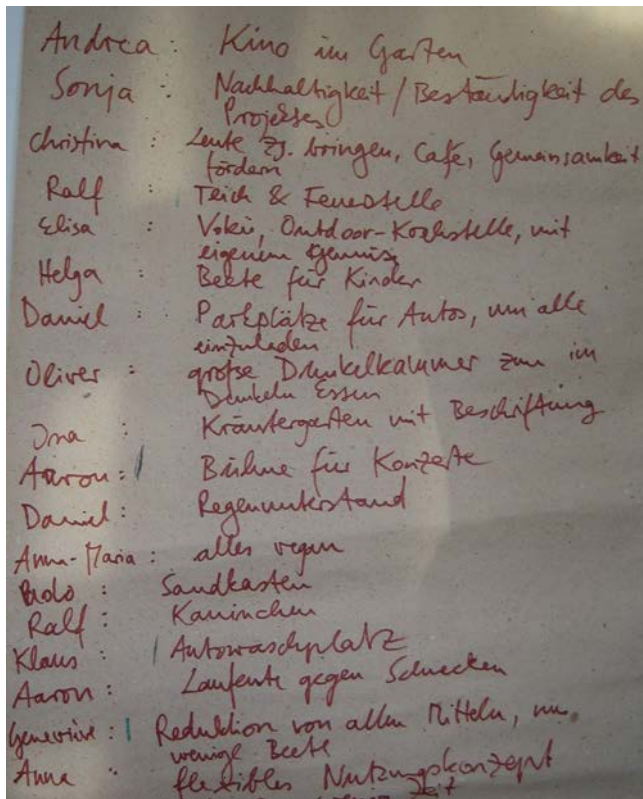 Andrea : Kino im Garten
Sonja : Nachhaltigkeit / Beständigkeit des
Projektes
Christina : Leute zs. bringen, Cafe, Gemeinsamkeit
fördern
Ralf : Teich & Feuerstelle
Elisa : Vokü, Outdoor-Kochstelle, mit
eigenem Gemüse
Helga : Beete für Kinder
Daniel : Parkplätze für Autos, um alle
einzuladen
Oliver : große Dunkelkammer zum im
Dunkeln Essen
Ina : Kräutergarten mit Beschriftung
Aaron : Bühne für Konzerte
Daniel : Regenunterstand
Anna-Maria : alles vegan
Sandkasten
Ralf : Kaninchen
Klaus : Autowaschplatz
Aaron : Laufente gegen Schnecken
Geneviève : Reduktion von allen Mitteln, nur
wenige Beete
Anna " flexibles Nutzungskonzept
Zeit